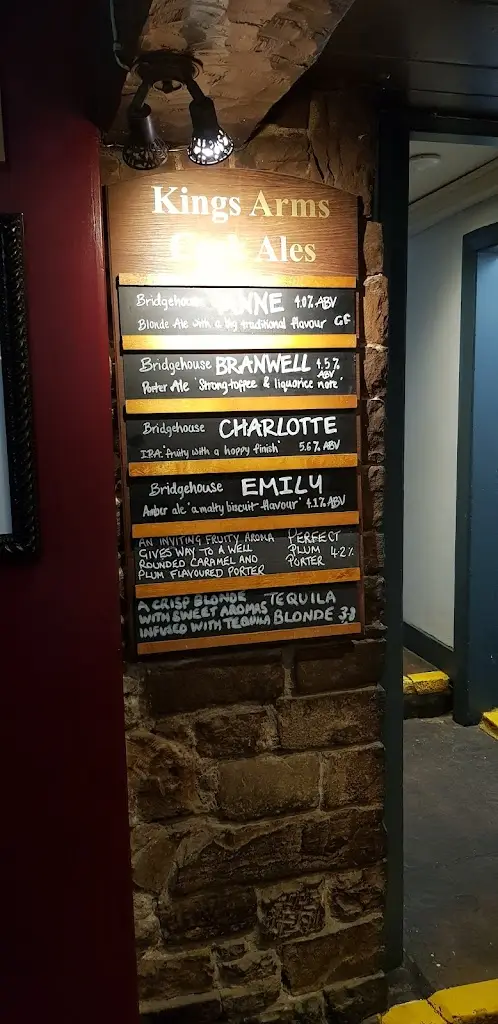 Kings Arms
Ales
Bridgehouse ANNE 4.0% ABV
Blonde Ale with a big traditional flavour GF
Bridgehouse BRANWELL 4.5% ABV
Porter Ale 'Strong toffee & liquorice note'
Bridgehouse CHARLOTTE
IPA 'fruity with a hoppy finish' 5.6% ABV
Bridgehouse EMILY
Amber ale 'a malty biscuit flavour' 4.1% ABV
AN INVITING FRUITY AROMA PERFECT
GIVES WAY TO A WELL PLUM 4.2%
ROUNDED CARAMEL AND PORTER
PLUM FLAVOURED PORTER
A CRISP BLONDE TEQUILA
WITH SWEET AROMAS BLONDE 3.8
INFUSED WITH TEQUILA